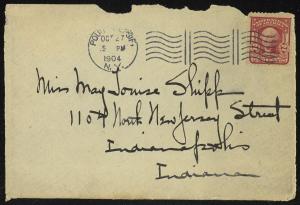 OCT 27
5 PM
1904
N.Y.
Miss May Louise Shipp
1104 North New Jersey Street
Indianapolis
Indiana